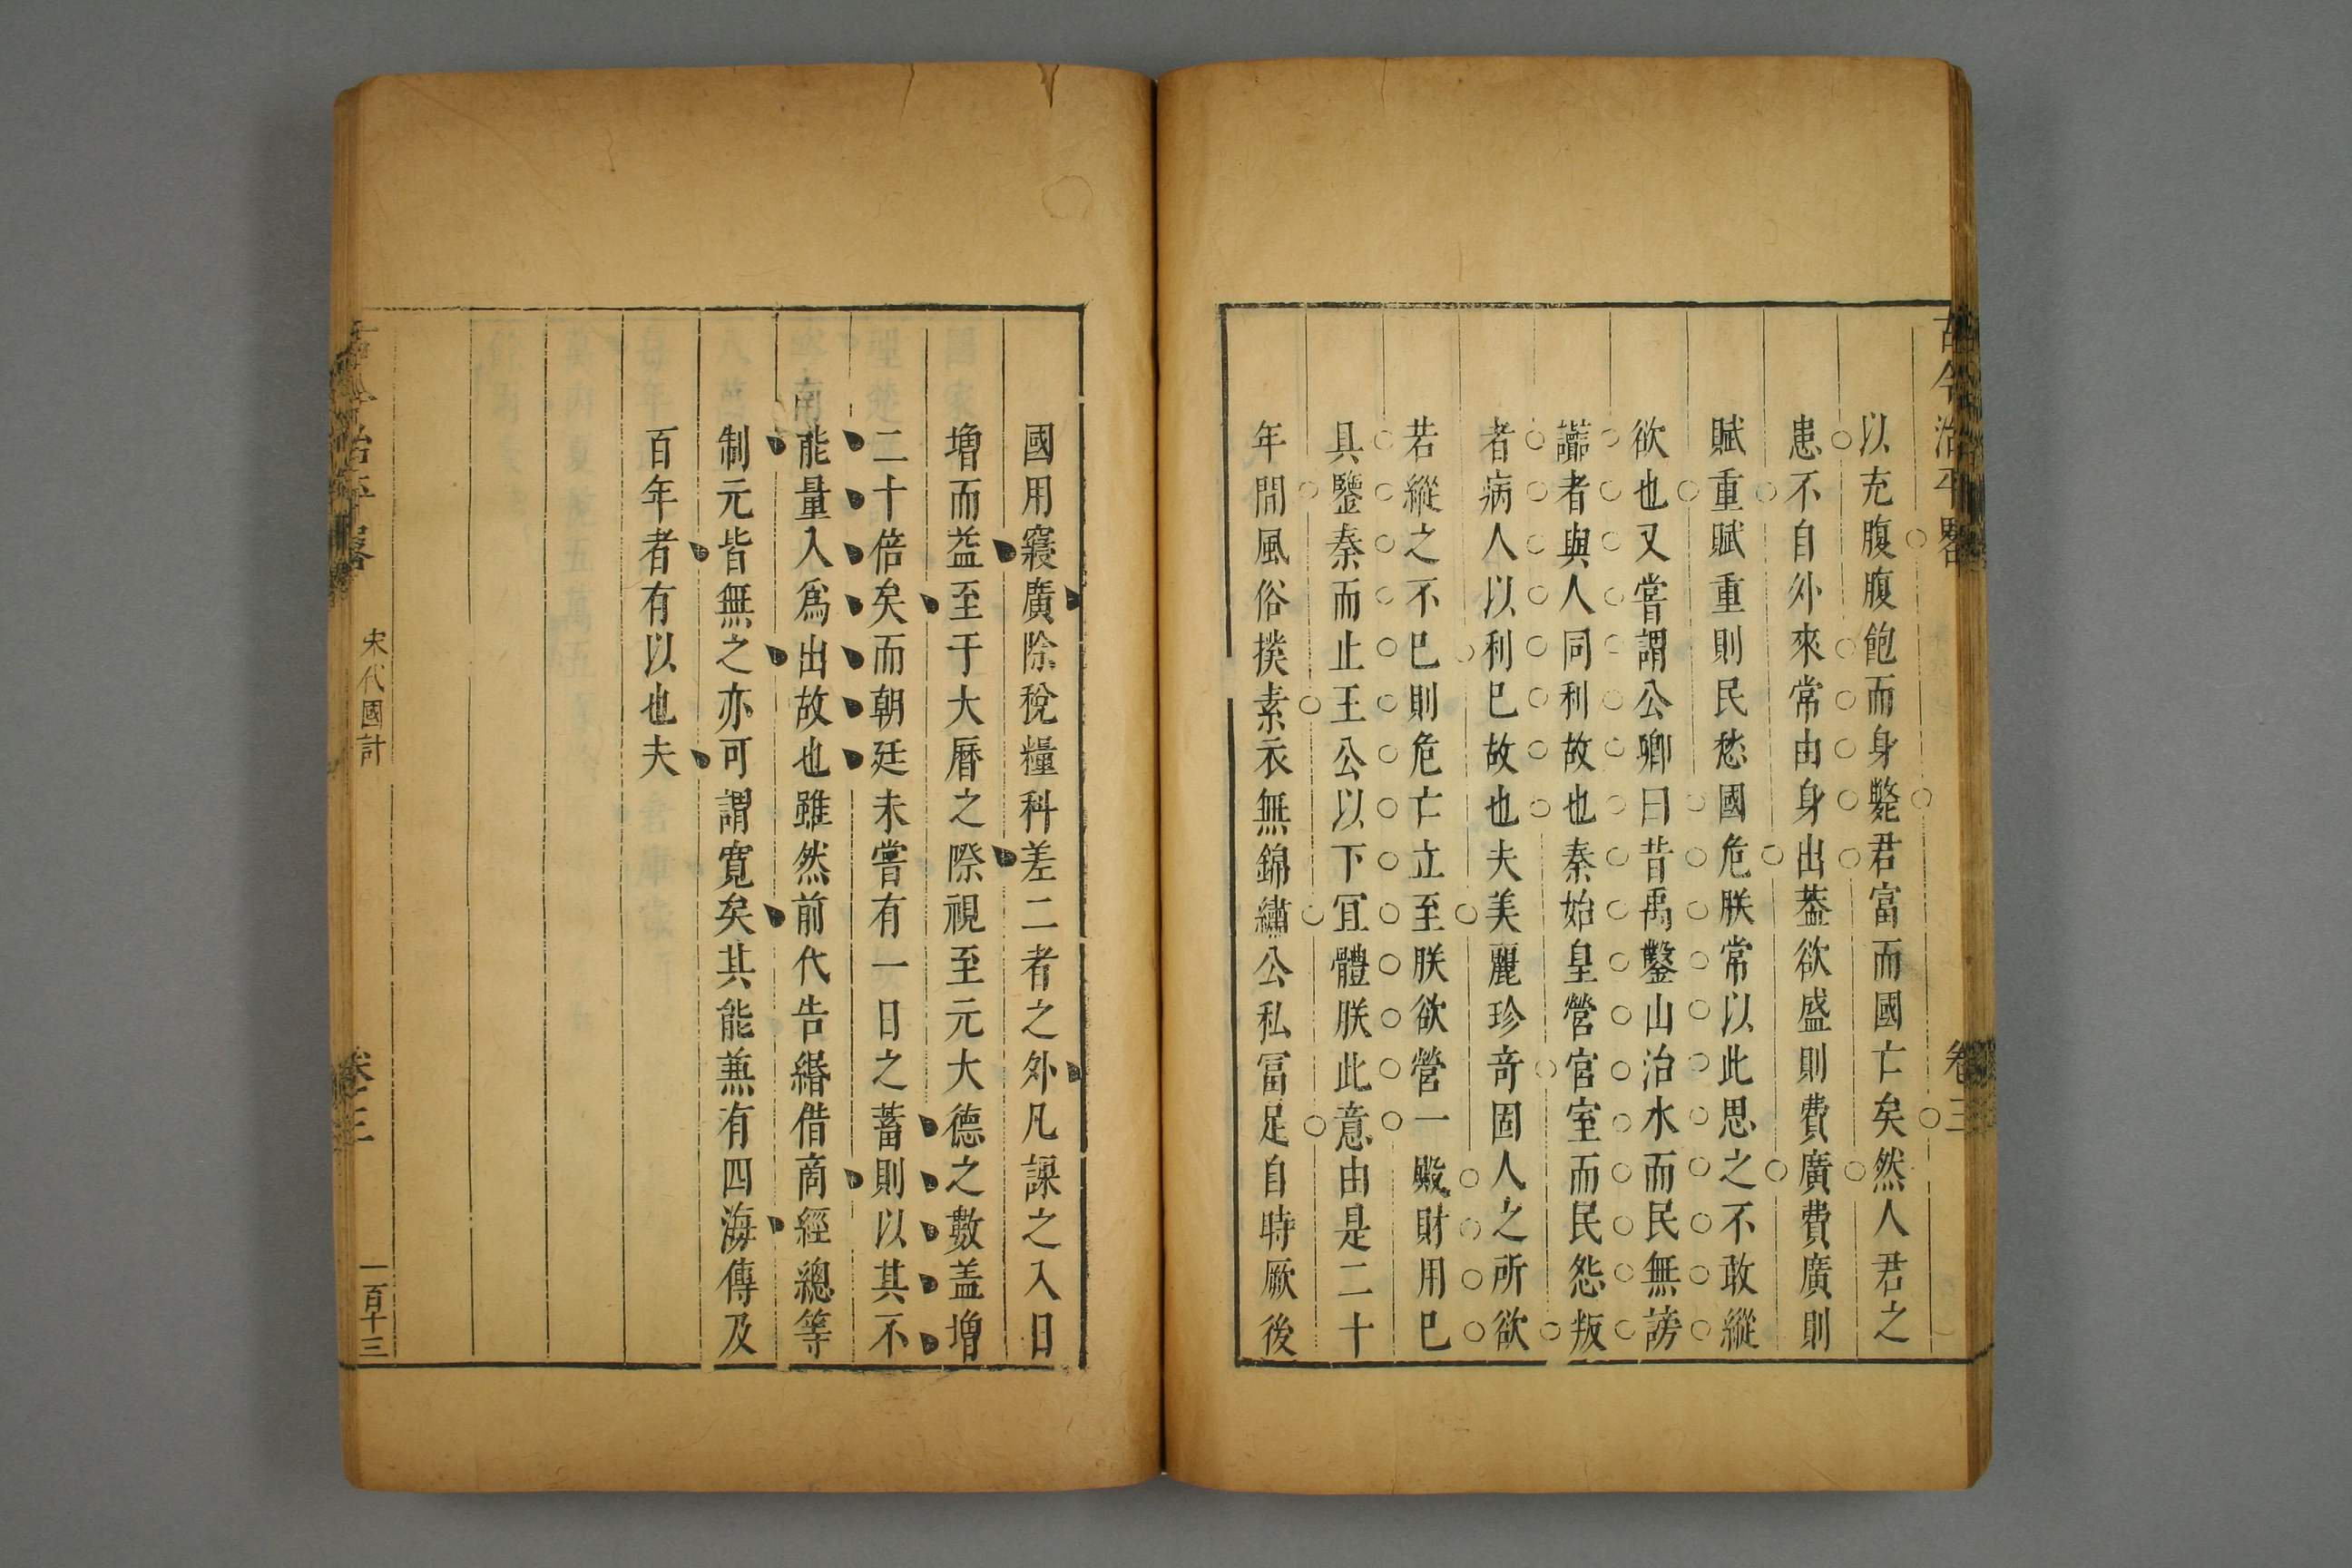 古今治平畧
卷三
以充腹腹飽而身斃君富而國亡矣然人君之
患不自外來常由身出葢欲盛則費廣費廣則
賦重賦重則民愁國危朕常以此思之不敢縱
欲也又嘗謂公卿曰昔禹鑿山治水而民無謗
讟者與人同利故也秦始皇營宮室而民怨叛
者病人以利巳故也夫美麗珍奇固人之所欲
若縱之不巳則危亡立至朕欲營一殿財用巳
具鑒秦而止王公以下冝體朕此意由是二十
年間風俗撲素衣無錦繡公私冨足自時厥後
國用寖廣除稅糧科差二者之外凡課之入日
增而益至于大曆之際視至元大德之數盖增
二十倍矣而朝廷未嘗有一日之蓄則以其不
能量入爲出故也雖然前代告緡借商經總等
制元皆無之亦可謂寛矣其能兼有四海傳及
百年者有以也夫
古今治平畧
宋代國計
卷三
一百十三